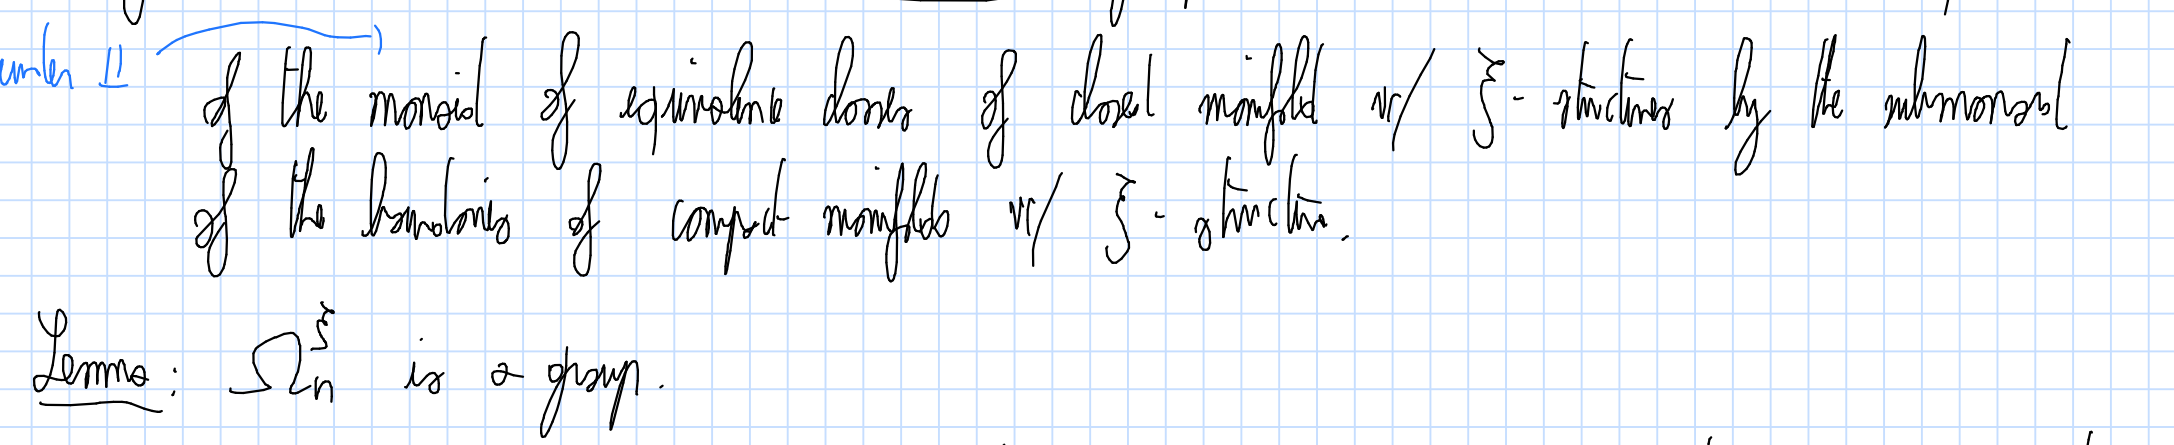 under ⨿
of the monoid of equivalence classes of closed manifold w/ ξ-structures by the submonoid
of the boundaries of compact manifolds w/ ξ-structure.
Lemma: Ω_n^ξ is a group.